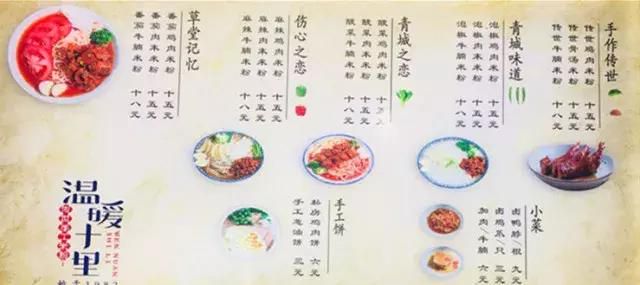 手作传世
传世鸡肉米粉 十五元
传世骨汤米粉 十五元
传世牛腩米粉 十八元
青城味道
泡椒鸡肉米粉 十五元
泡椒肉末米粉 十五元
泡椒牛腩米粉 十八元
青城之恋
酸菜鸡肉米粉 十五元
酸菜肉末米粉 十五元
酸菜牛腩米粉 十八元
伤心之恋
麻辣鸡肉米粉 十五元
麻辣肉末米粉 十五元
麻辣牛腩米粉 十八元
草堂记忆
番茄鸡肉米粉 十五元
番茄肉末米粉 十五元
番茄牛腩米粉 十八元
小菜
卤鸭脖/根 九元
卤鸡爪/只 三元
加肉/牛腩 六元
手工饼
私房鸡肉饼 六元
手工葱油饼 三元
温暖十里
WEN NUAN
SHI LI